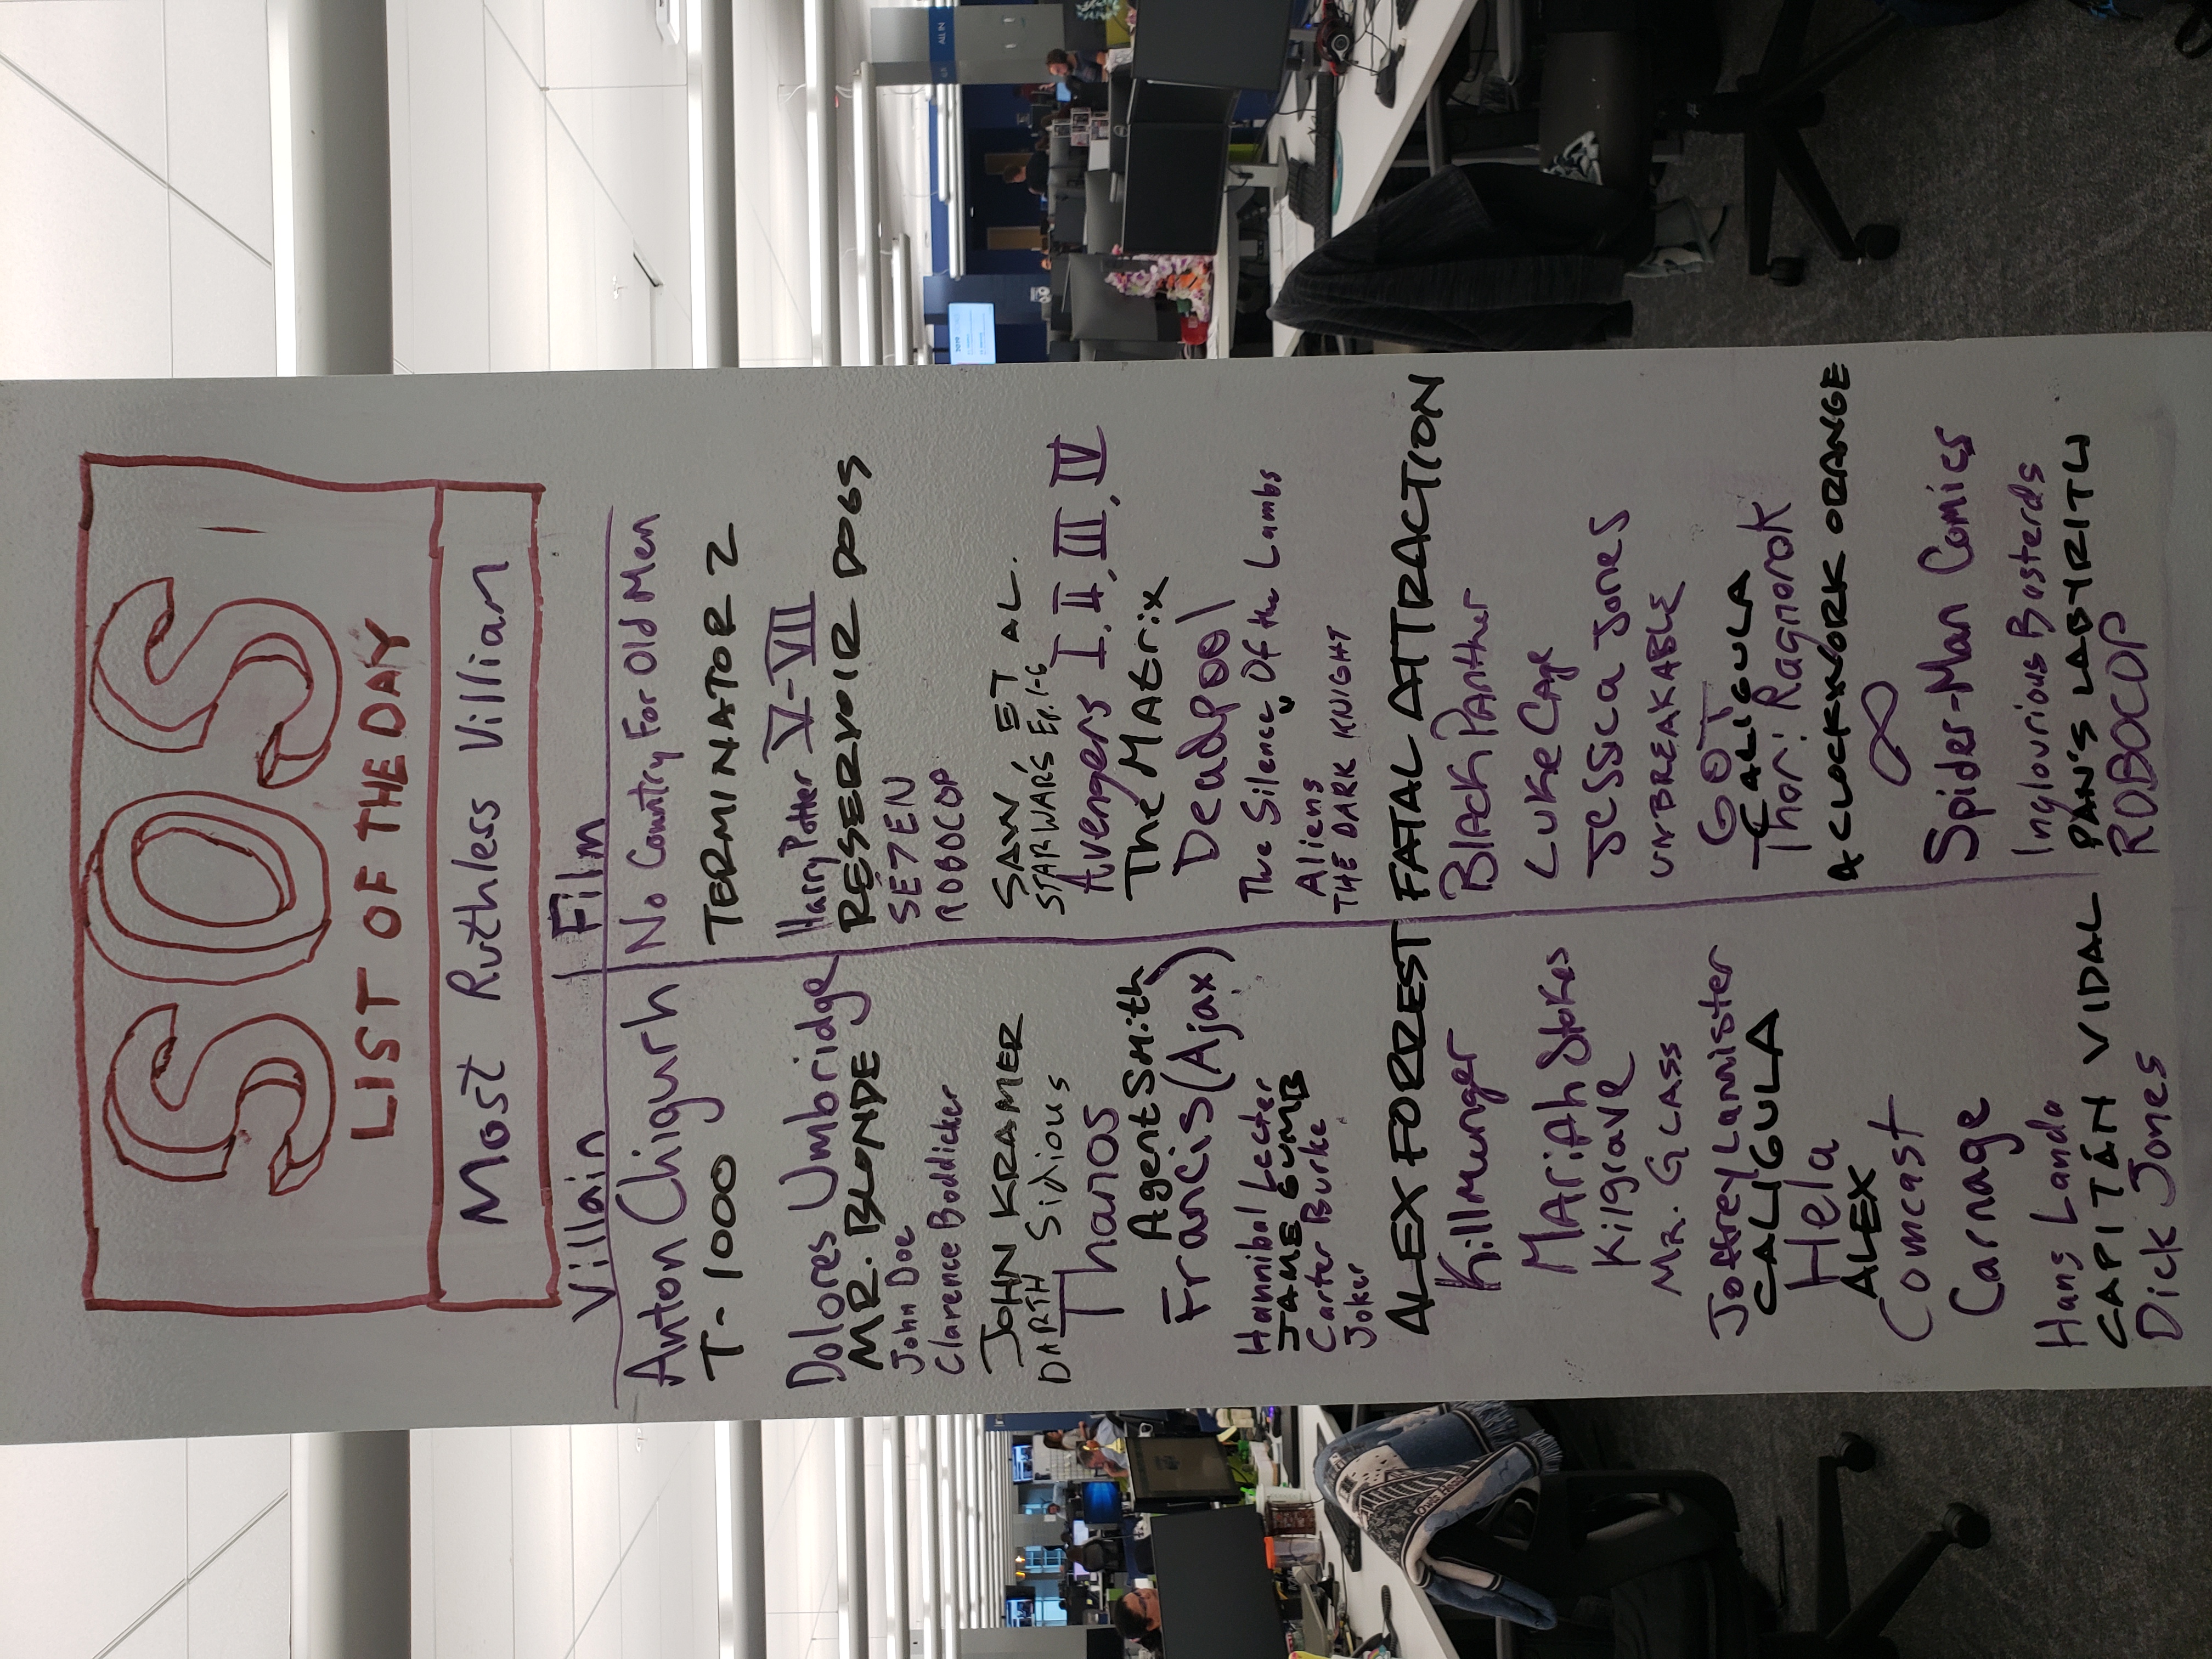 SOS
LIST OF THE DAY
Most Ruthless Villian
Villain Film
Anton Chigurh No Country For Old Men
T-1000 TERMINATOR 2
Dolores Umbridge Harry Potter V-VII
MR. BLONDE RESERVOIR DOGS
John Doe SE7EN
Clarence Boddicker ROBOCOP
JOHN KRAMER SAW, ET AL.
DARTH Sidious STAR WARS Ep. 1-6
Thanos Avengers I, II, III, IV
Agent Smith The Matrix
Francis (Ajax) Deadpool
Hannibal Lecter The Silence Of the Lambs
JAME GUMB
Carter Burke Aliens
Joker THE DARK KNIGHT
ALEX FORREST FATAL ATTRACTION
Killmunger Black Panther
Mariah Stokes Luke Cage
Kilgrave Jessica Jones
MR. GLASS UNBREAKABLE
Joffrey Lannister GOT
CALIGULA CALIGULA
Hela Thor: Ragnorok
ALEX A CLOCKWORK ORANGE
Comcast ∞
Carnage Spider-Man Comics
Hans Landa Inglourious Basterds
CAPITÁN VIDAL PAN'S LABYRITH
Dick Jones ROBOCOP
ALL IN